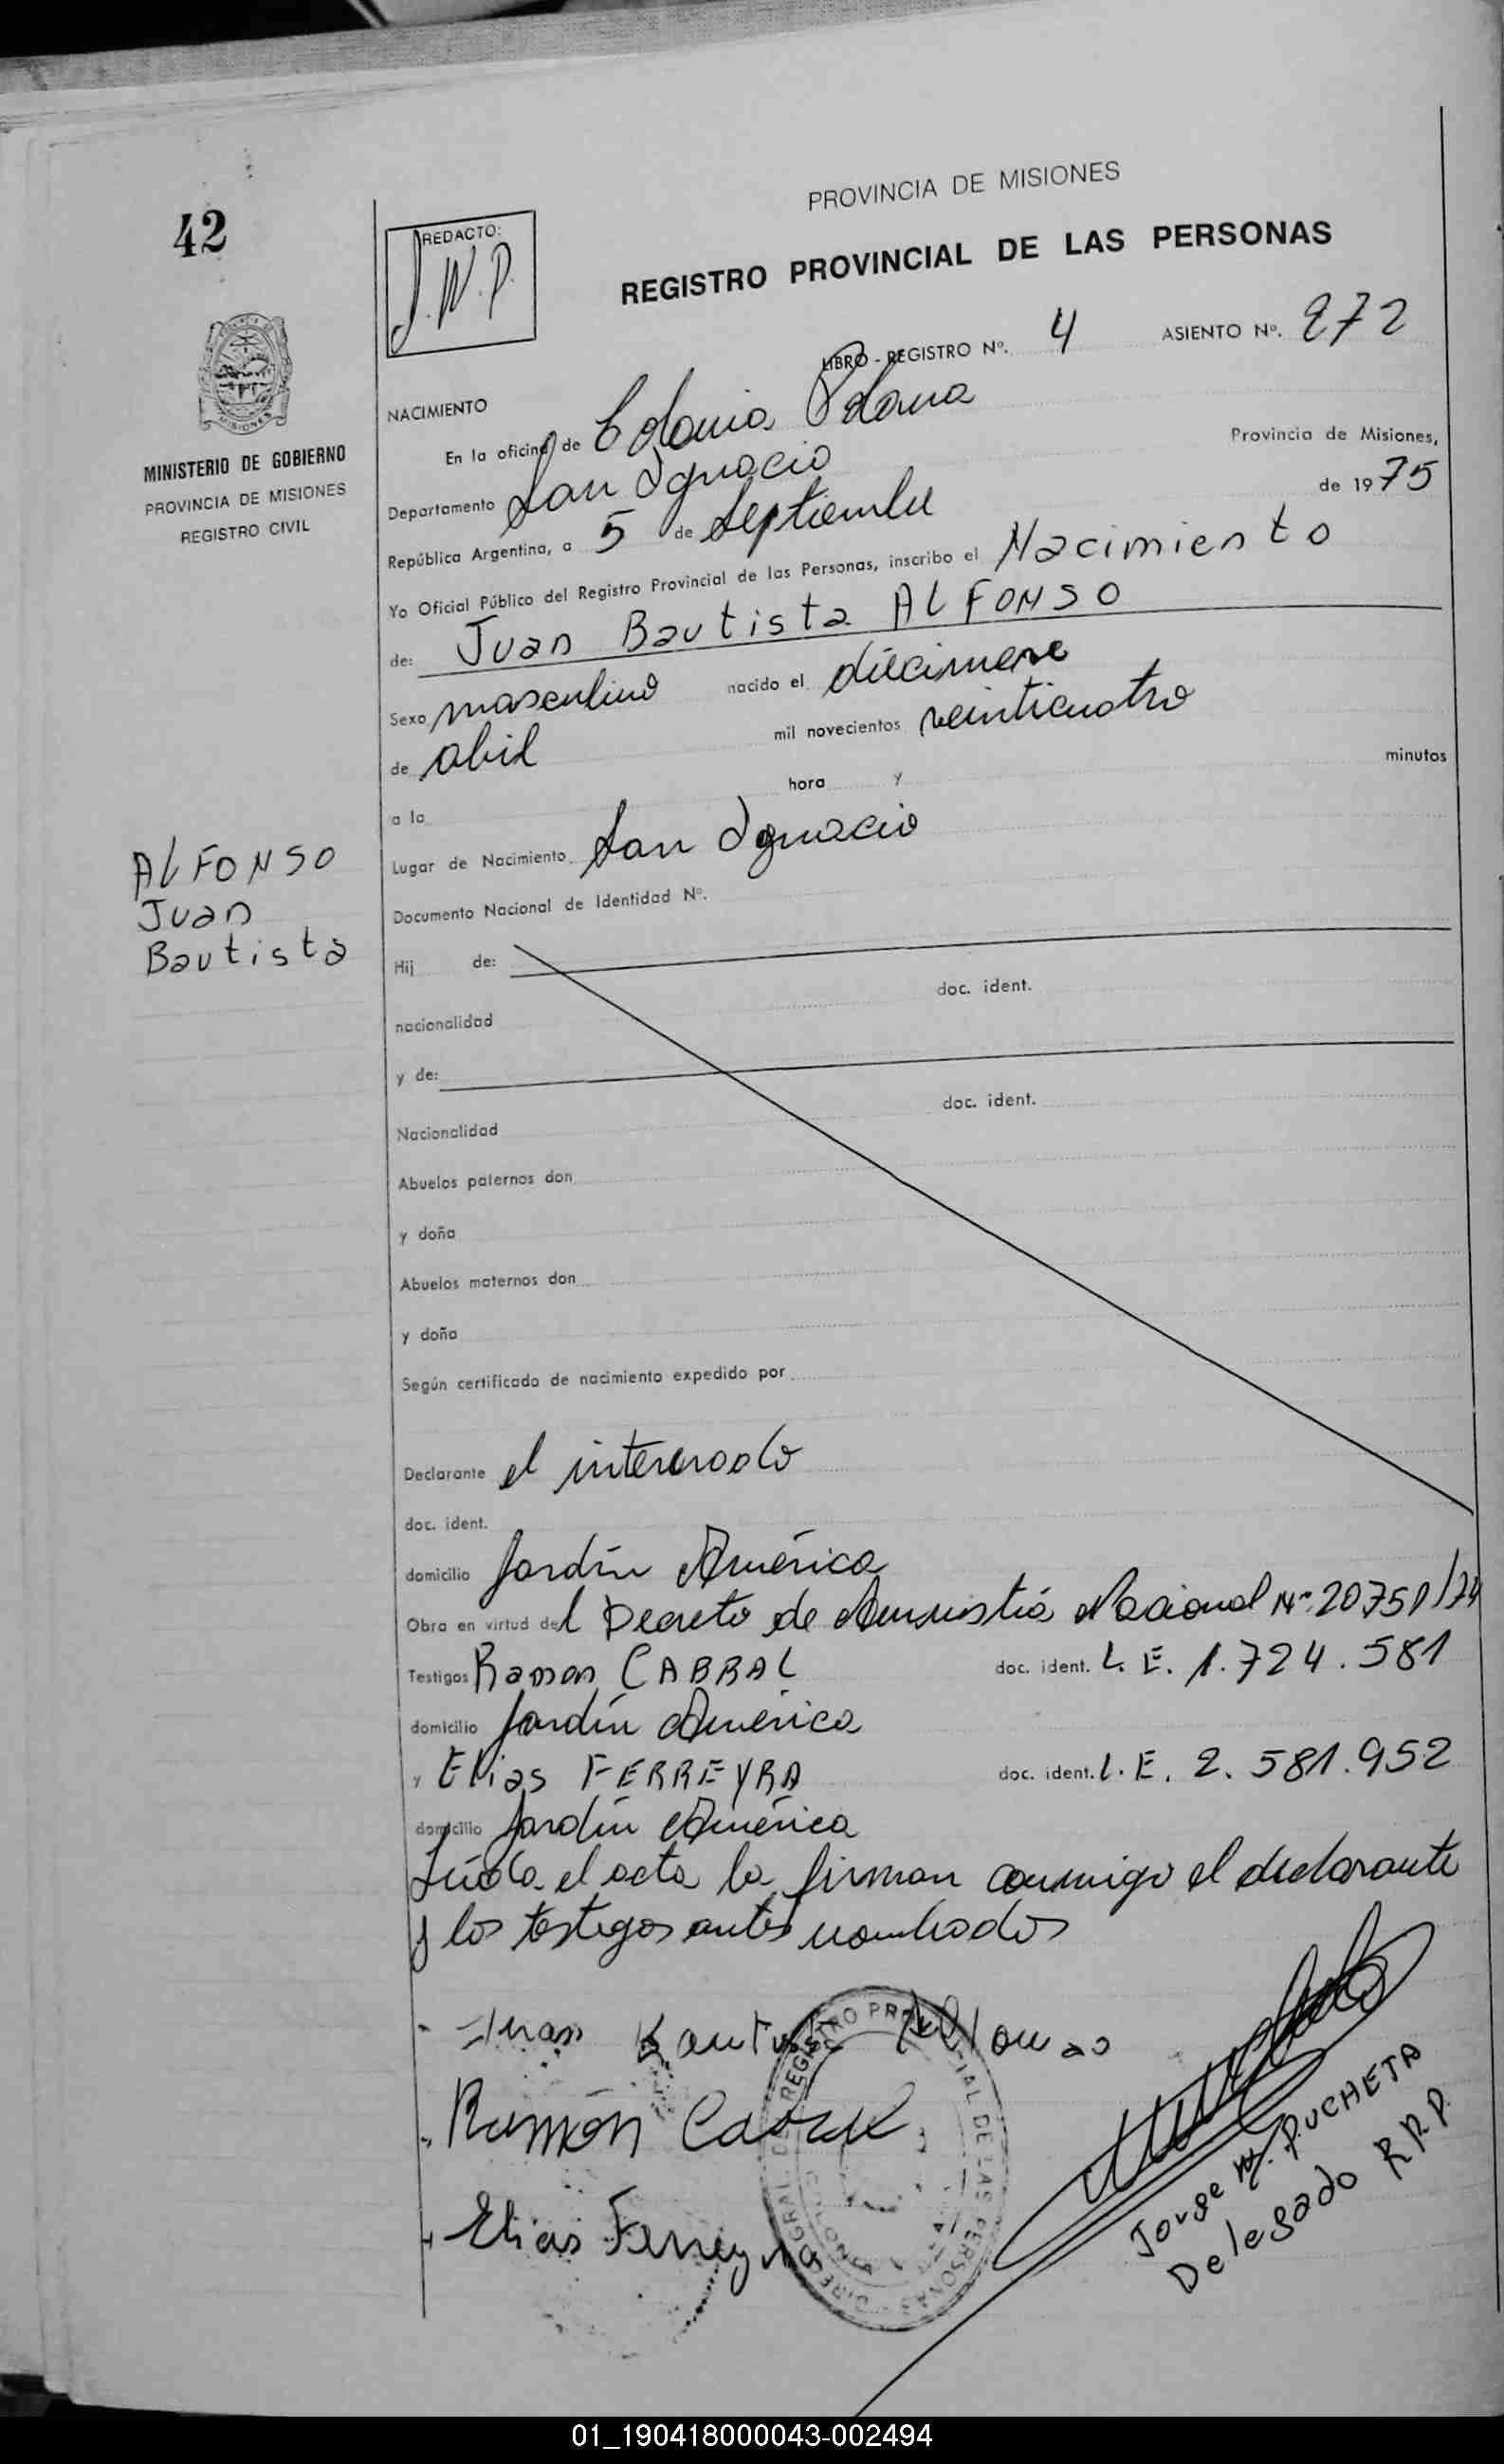 42
PROVINCIA DE MISIONES
REDACTO:
J.W.P.
REGISTRO PROVINCIAL DE LAS PERSONAS
LIBRO - REGISTRO Nº. 4 ASIENTO Nº. 272
MINISTERIO DE GOBIERNO
PROVINCIA DE MISIONES
REGISTRO CIVIL
NACIMIENTO
En la oficina de Colonia Polana
Departamento San Ignacio Provincia de Misiones,
República Argentina, a 5 de Septiembre de 1975
Yo Oficial Público del Registro Provincial de las Personas, inscribo el Nacimiento
de: Juan Bautista ALFONSO
Sexo masculino nacido el diecinueve
de abril mil novecientos veinticuatro
a la hora y minutos
Lugar de Nacimiento San Ignacio
ALFONSO
Juan
Bautista
Documento Nacional de Identidad Nº.
Hij de:
nacionalidad doc. ident.
y de:
Nacionalidad doc. ident.
Abuelos paternos don
y doña
Abuelos maternos don
y doña
Según certificado de nacimiento expedido por
Declarante el interesado
doc. ident.
domicilio Jardín América
Obra en virtud del Decreto de Amnistía Nacional Nº 20751/74
Testigos Ramon CABRAL doc. ident. L. E. 1.724.581
domicilio Jardín América
y Elias FERREYRA doc. ident. L. E. 2.581.952
domicilio Jardín América
Leída el acta la firman conmigo el declarante
y los testigos antes nombrados
Juan Bautista Alfonso
Ramón Cabral
Elias Ferreyra
REGISTRO PROVINCIAL DE LAS PERSONAS
Jorge W. PUCHETA
Delegado R.R.P.
01_190418000043-002494